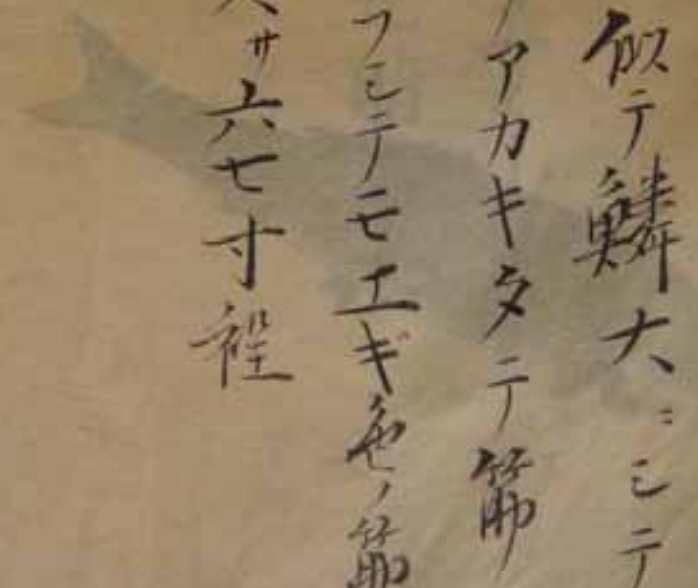 似テ鱗大ニシテ
アカキタテ筋
フシテモエギ色ノ筋
大サ六七寸程